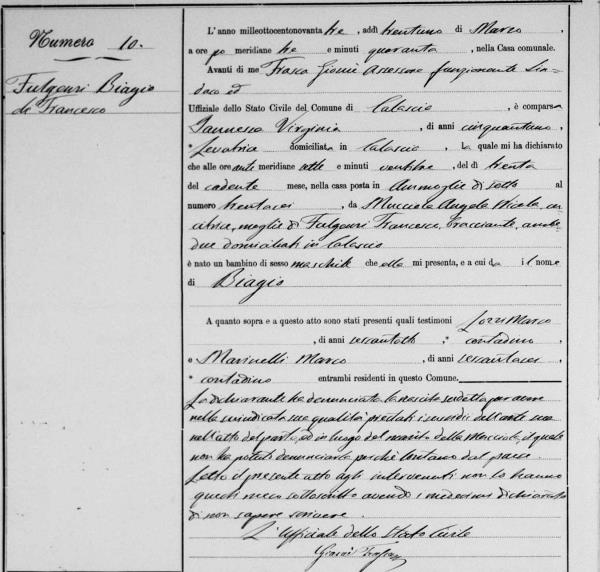 Numero 10.
Fulgenzi Biagio
di Francesco
L'anno milleottocentonovanta tre, addì trentuno di Marzo,
a ore po meridiane tre e minuti quaranta, nella Casa comunale.
Avanti di me Frasca Giosuè Assessore funzionante Sin-
daco ed
Uffiziale dello Stato Civile del Comune di Calascio, è comparsa
Iannessa Virginia, di anni cinquantuno,
Levatrice domiciliata in Calascio, la quale mi ha dichiarato
che alle ore ante meridiane sette e minuti ventitre, del dì trenta
del cadente mese, nella casa posta in Ammoglie di sotto al
numero trentasei, da Mucciola Angela Nicola, cu
citrice, moglie di Fulgenzi Francesco, bracciante, amb
due domiciliati in Calascio
è nato un bambino di sesso maschile che ella mi presenta, e a cui da il nome
di Biagio
A quanto sopra e a questo atto sono stati presenti quali testimoni Marco
, di anni sessantotto, contadino
e Marinelli Marco, di anni sessantasei,
contadino entrambi residenti in questo Comune.
La dichiarante ha denunciato la nascita suddetta per avere
nella suindicata sua qualità prestati i soccorsi dell'arte sua
nell'atto del parto, ed in luogo del marito della Mucciola, il quale
non ha potuto denunciarla perchè lontano dal paese.
Letto il presente atto agli intervenuti non lo hanno
questi meco sottoscritto avendo i medesimi dichiarato
di non sapere scrivere.
L'Uffiziale dello Stato Civile
Giosuè Frasca